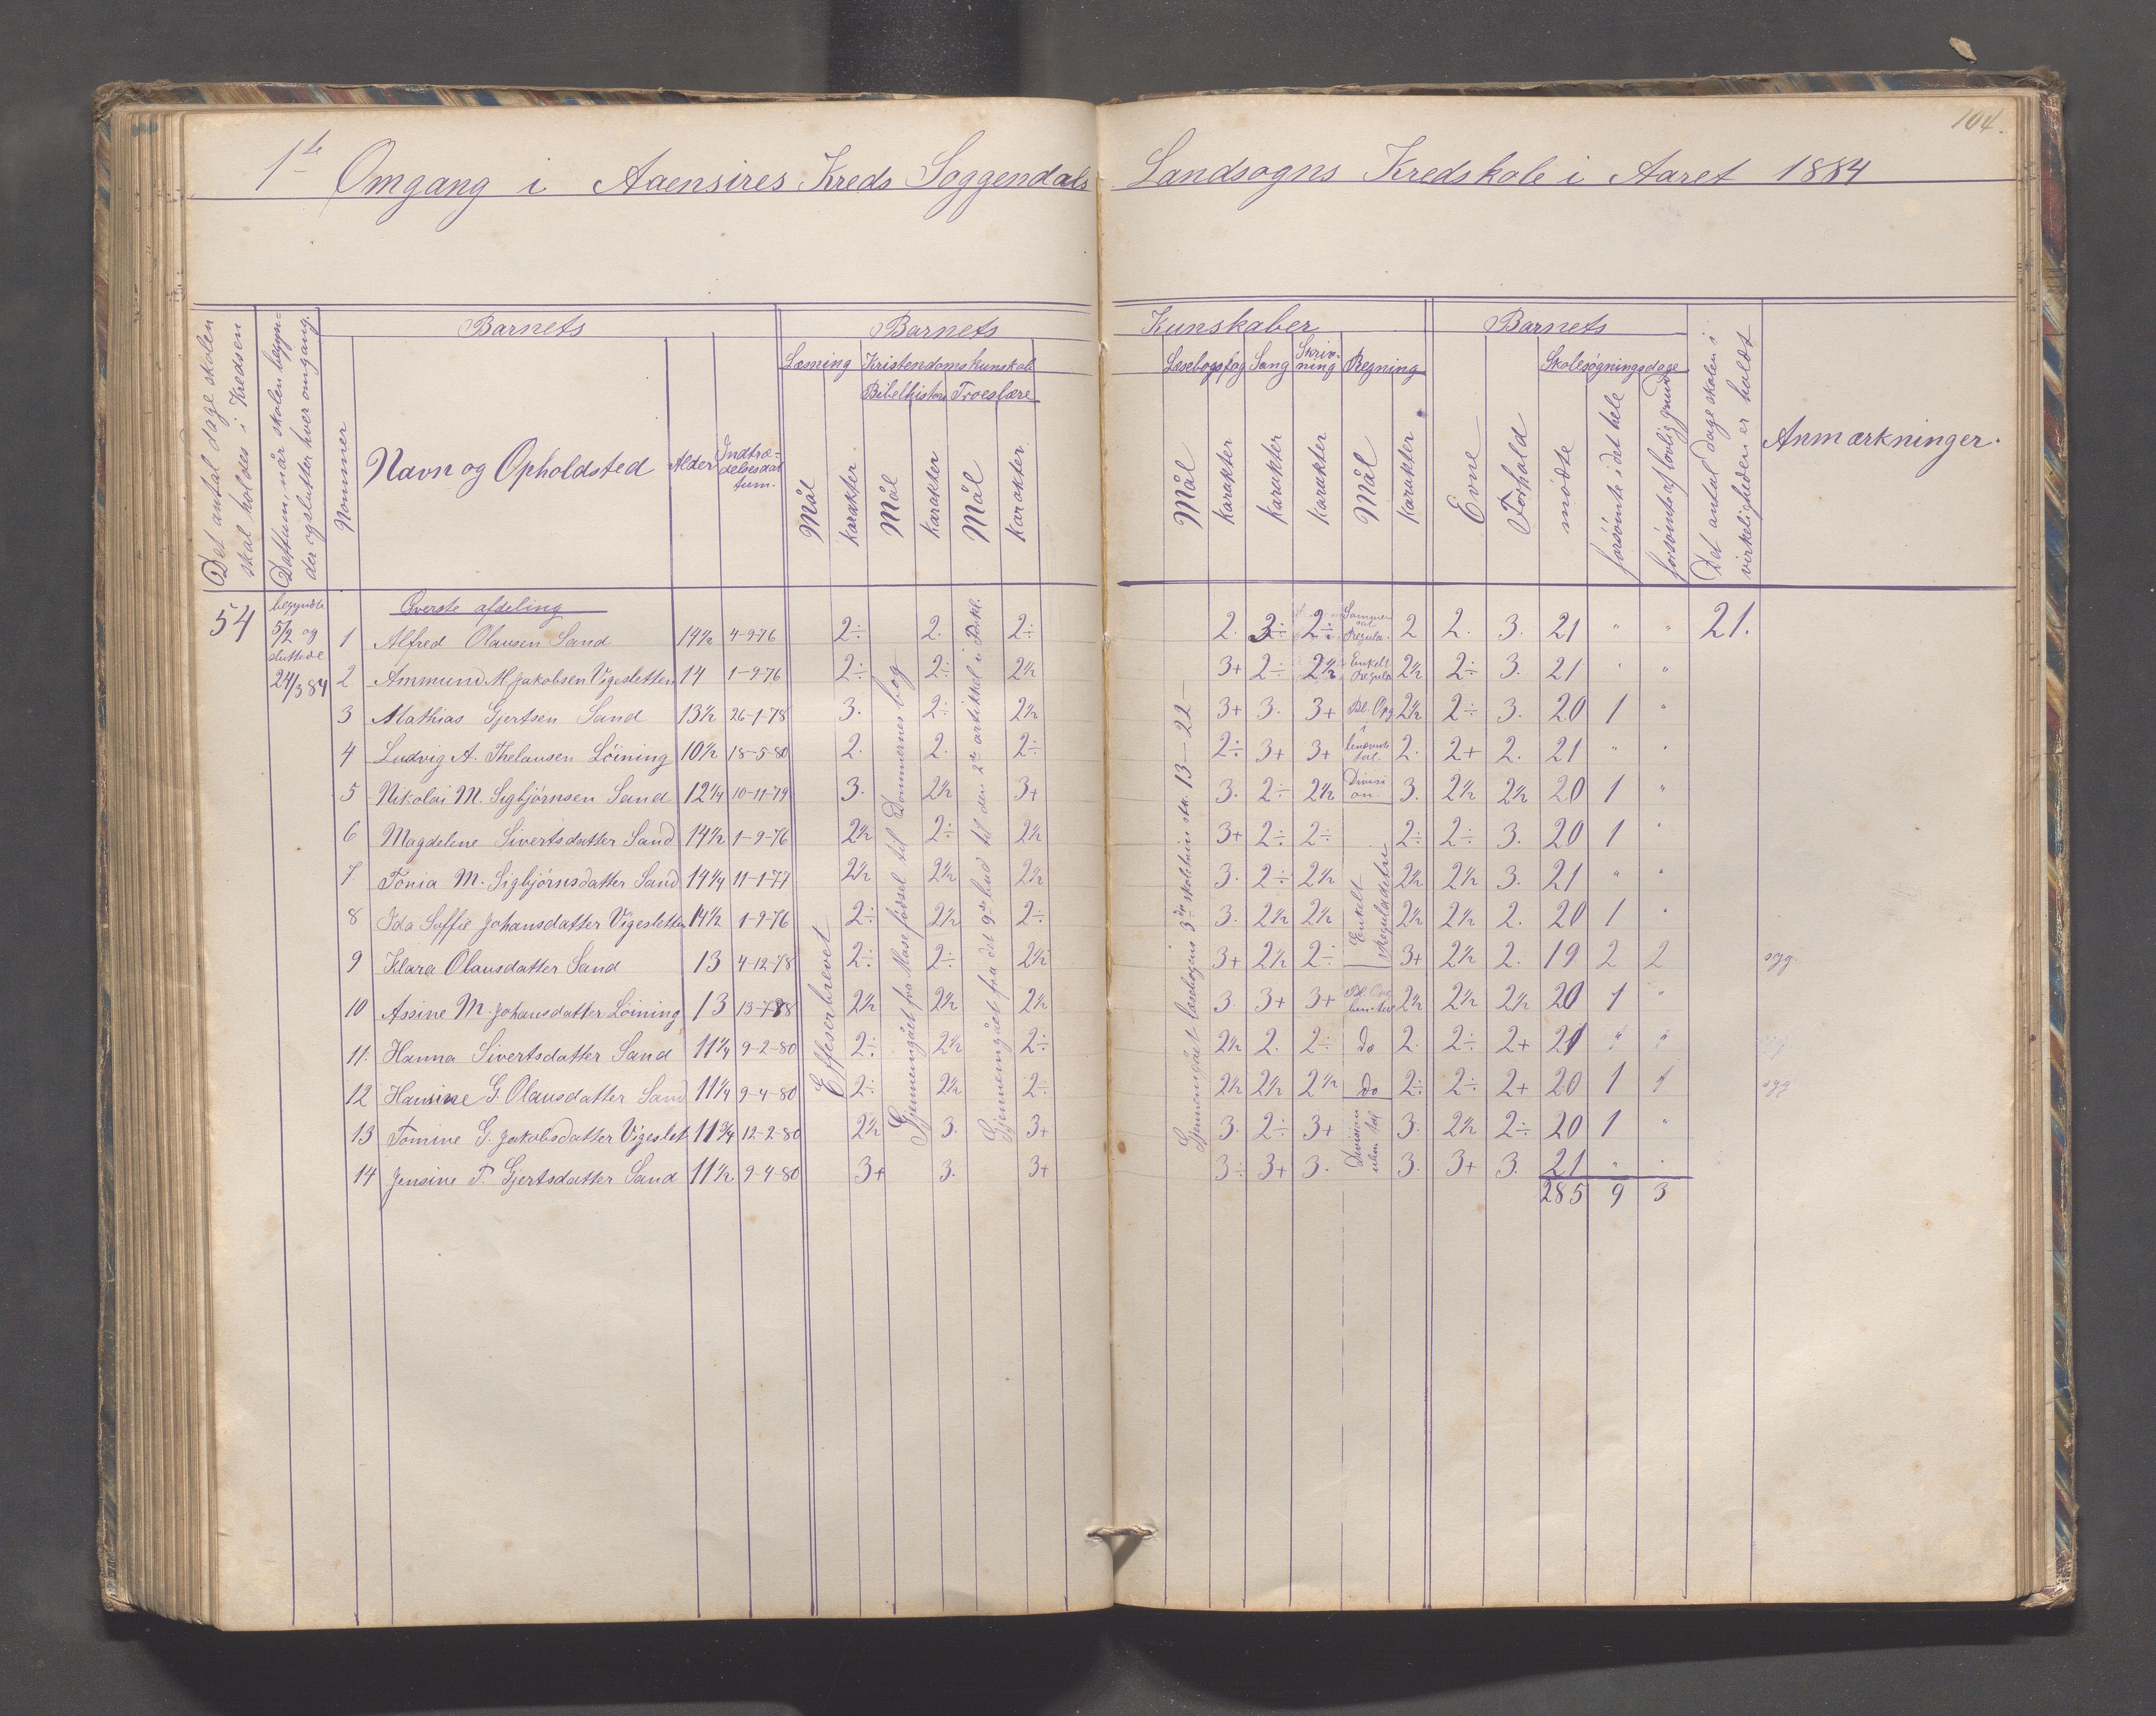 104.
1ste Omgang i Aaensires Kreds Soggendals Landsogns Kredskole i Aaret 1884
Det antal dage skolen skal holdes i Kredsen
Dattum, når skolen begynder og slutter hver omgang.
Barnets
Nommer
Navn og Opholdsted
Alder
Indtrædelsesdattum.
Barnets Kunskaber
Læsning
Kristendomskunskab
Bibelhistorie
Troeslære
Mål
Karakter
Mål
Karakter
Mål
Karakter
Læsebogsfag
Sang
Skrivning
Regning
Mål
Karakter
Karakter
Karakter
Mål
Karakter
Barnets
Evne
Forhold
Skolesøgningsdage
mødte
forsømte i det hele
forsømt af lovlig grund
Det antal dage skolen i virkeligheden er holdt
Anmærkninger.
54
begyndte 5/2 og sluttede 24/3 84
Øverste afdeling
1 Alfred Olausen Sand 14½ 4-9-76 2÷ 2. 2÷ 2. 3÷ 2÷ Sammensat Regula. 2 2. 3. 21 " " 21.
2 Ammund M. Jakobsen Vigesletten 14 1-9-76 2÷ 2÷ 2½ 3+ 2÷ 2½ Enkelt Regula 2½ 2÷ 3. 21 " "
3 Mathias Gjertsen Sand 13½ 26-1-78 3. 2÷ 2½ 3+ 3. 3+ Bl. Opg 2½ 2÷ 3. 20 1 "
4 Ludvig A. Thelausen Løining 10½ 18-5-80 2. 2. 2÷ 2÷ 3+ 3+ i benævnte tal. 2. 2+ 2. 21 " "
5 Nikolai M. Sigbjørnsen Sand 12¼ 10-11-79 3. 2½ 3+ 3. 2÷ 2½ Division 3. 2½ 2½ 20 1 "
6 Magdelene Sivertsdatter Sand 14½ 1-9-76 2½ 2÷ 2½ 3+ 2÷ 2÷ 2÷ 2÷ 3. 20 1 "
7 Tonia M. Sigbjørnsdatter Sand 14¼ 11-1-77 2½ 2½ 2½ 3. 2÷ 2½ 2½ 2½ 3. 21 " "
8 Ida Soffie Johansdatter Vigesletten 14½ 1-9-76 2÷ 2½ 2÷ 3. 2½ 2½ 2½ 2½ 2. 20 1 "
9 Klara Olausdatter Sand 13 4-12-78 2÷ 2÷ 2½ 3+ 2½ 2÷ 3+ 2½ 2. 19 2 2 syg.
10 Assine M. Johansdatter Løining 13 13-7-78 2½ 2½ 2½ 3. 3+ 3+ 2½ 2½ 2½ 20 1 "
11. Hanna Sivertsdatter Sand 11¼ 9-2-80 2÷ 2½ 2÷ 2½ 2. 2÷ do 2. 2÷ 2+ 21 " "
12 Hansine G. Olausdatter Sand 11¼ 9-4-80 2÷ 2½ 2÷ 2½ 2½ 2½ do 2÷ 2÷ 2+ 20 1 1 syg
13 Tomine G. Jakobsdatter Vigeslet 11¾ 12-2-80 2½ 3. 3+ 3. 2÷ 3+ 3. 2½ 2÷ 20 1 "
14 Jensine T. Gjertsdatter Sand 11½ 9-4-80 3+ 3. 3+ 3÷ 3+ 3. 3. 3+ 3. 21 " "
285 9 3
Effeserbrevet
Gjennemgået fra Mose fødsel til Dommernes bog
Gjennemgået fra det 9de bud til den 2den artikkel i Forkl.
Gjennemgået læsebogens 3die skoletrin str. 13–22
Enkelt Reguladetri
Division uben. tal